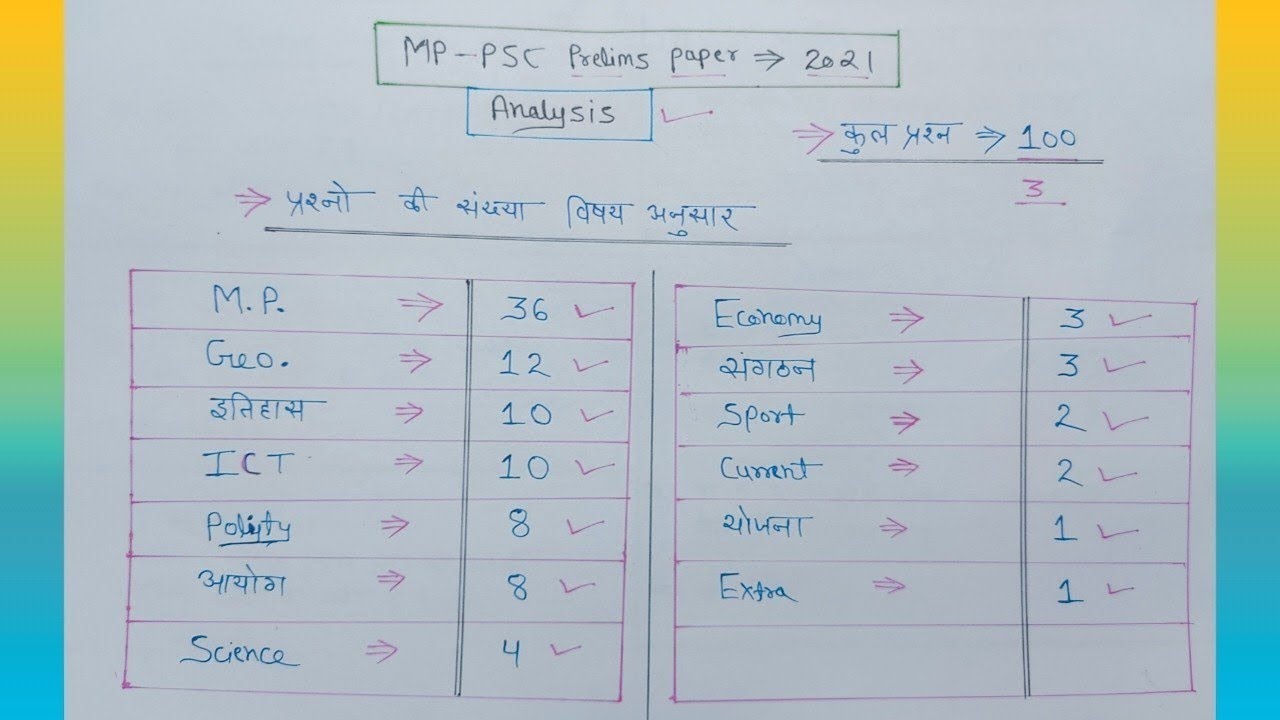 MP-PSC Prelims paper ⇒ 2021
Analysis ✓
⇒ कुल प्रश्न ⇒ 100
3
⇒ प्रश्नो की संख्या विषय अनुसार
M.P. ⇒ 36 ✓
Geo. ⇒ 12 ✓
इतिहास ⇒ 10 ✓
ICT ⇒ 10 ✓
Polity ⇒ 8 ✓
आयोग ⇒ 8 ✓
Science ⇒ 4 ✓
Economy ⇒ 3 ✓
संगठन ⇒ 3 ✓
Sport ⇒ 2 ✓
Current ⇒ 2 ✓
योजना ⇒ 1 ✓
Extra ⇒ 1 ✓